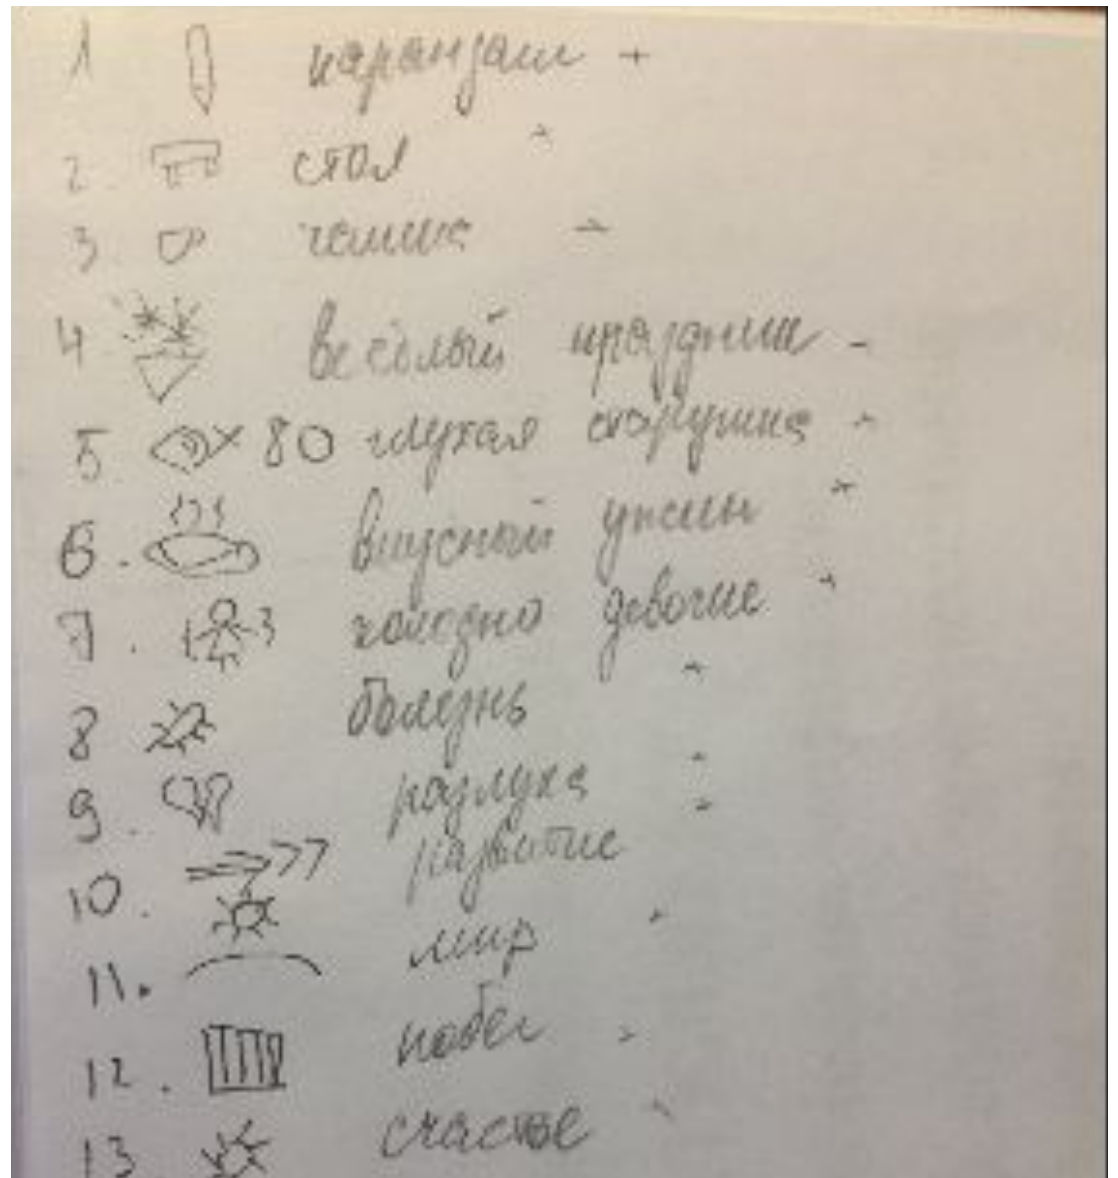 1 карандаш +
2. стол +
3 чашка +
4 весёлый праздник -
5 80 глухая старушка +
6. вкусный ужин +
7. холодно девочке +
8 болезнь +
9. разлука -
10. развитие +
11. мир +
12. побег +
13 счастье +